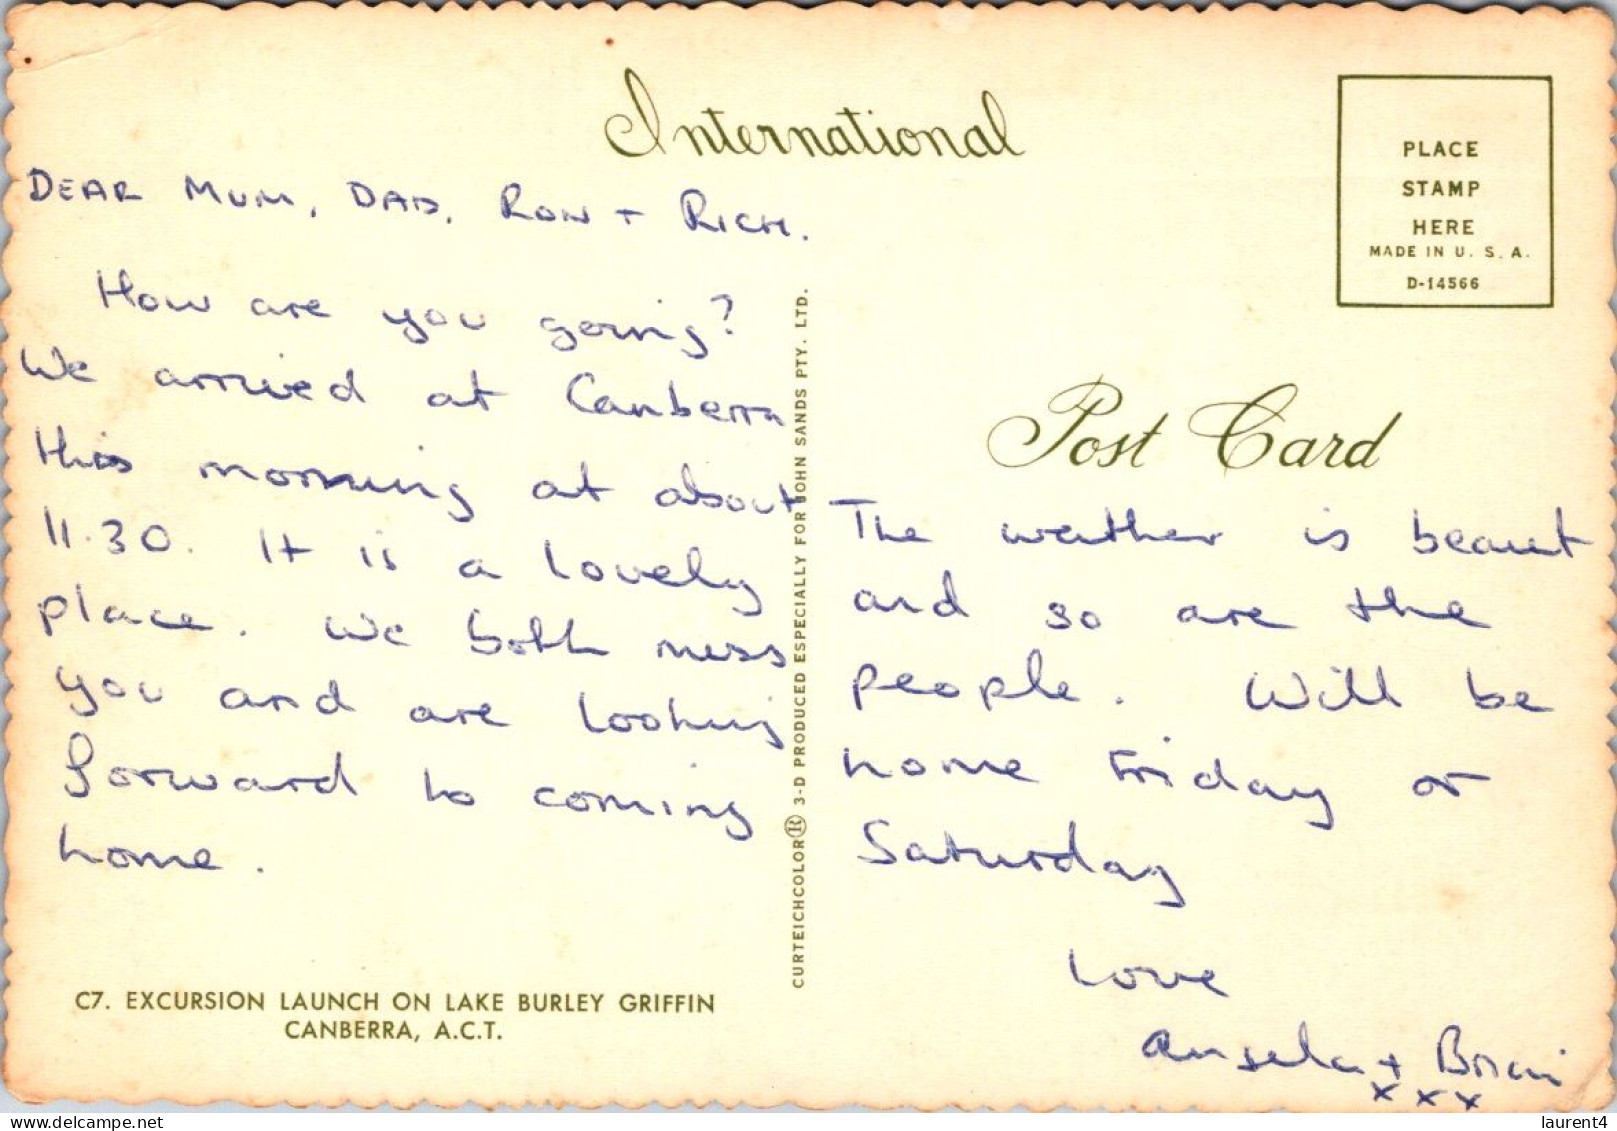 International
PLACE
STAMP
HERE
MADE IN U. S. A.
D-14566
DEAR MUM, DAD, RON + RICH.
How are you going?
We arrived at Canberra
this morning at about
11.30. It is a lovely
place. We both miss
you and are looking
forward to coming
home.
C7. EXCURSION LAUNCH ON LAKE BURLEY GRIFFIN
CANBERRA, A.C.T.
CURTEICHCOLOR® 3-D PRODUCED ESPECIALLY FOR JOHN SANDS PTY. LTD.
Post Card
The weather is beaut
and so are the
people. Will be
home Friday or
Saturday
Love
Angela + Brian
x x x
laurent4